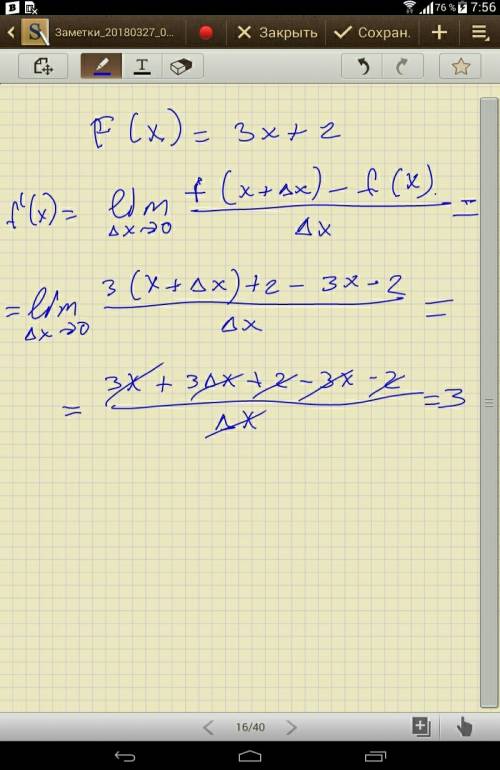 76 % 7:56
S Заметки_20180327_0... Закрыть Сохран.
T
F(x) = 3x + 2
f'(x) = lim Δx→0 f(x+Δx) − f(x) / Δx =
= lim Δx→0 3(x+Δx)+2 − 3x − 2 / Δx =
= 3x + 3Δx + 2 − 3x − 2 / Δx = 3
16/40